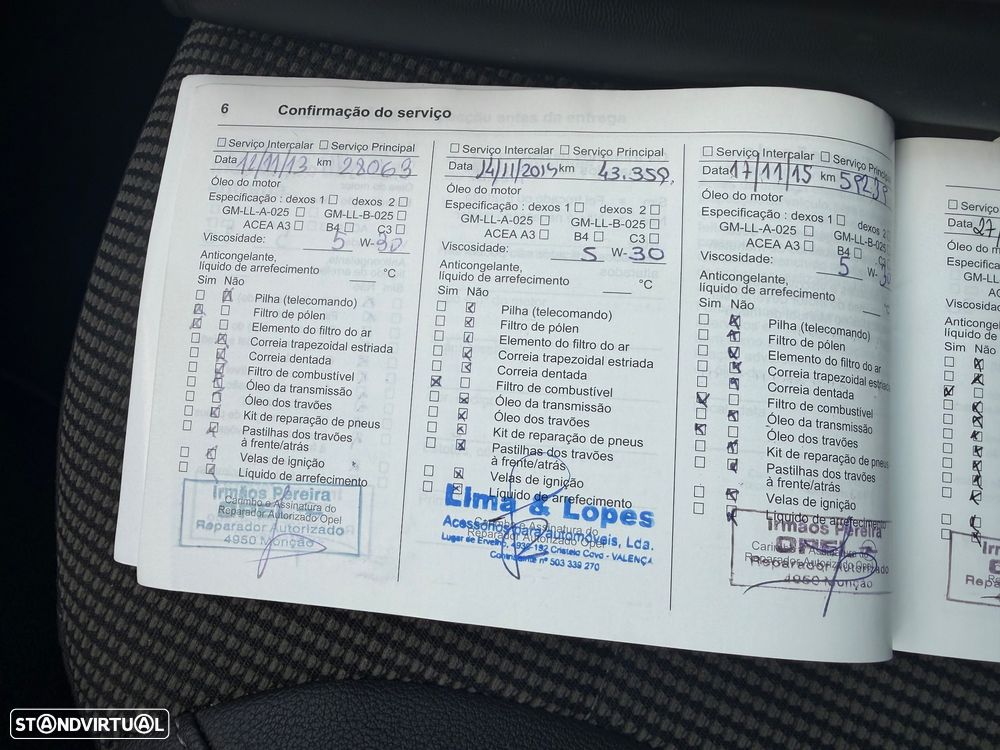 6 Confirmação do serviço
Serviço Intercalar Serviço Principal
Data 12/11/13 km 28063
Óleo do motor
Especificação : dexos 1 dexos 2
GM-LL-A-025 GM-LL-B-025
ACEA A3 B4 C3
Viscosidade: 5 W-30
Anticongelante,
líquido de arrefecimento °C
Sim Não
Pilha (telecomando)
Filtro de pólen
Elemento do filtro do ar
Correia trapezoidal estriada
Correia dentada
Filtro de combustível
Óleo da transmissão
Óleo dos travões
Kit de reparação de pneus
Pastilhas dos travões
à frente/atrás
Velas de ignição
Líquido de arrefecimento
Irmãos Pereira
Carimbo e Assinatura do
Reparador Autorizado Opel
Reparador Autorizado
4950 Monção
Serviço Intercalar Serviço Principal
Data 24/11/2014 km 43.359
Óleo do motor
Especificação : dexos 1 dexos 2
GM-LL-A-025 GM-LL-B-025
ACEA A3 B4 C3
Viscosidade: 5 W-30
Anticongelante,
líquido de arrefecimento °C
Sim Não
Pilha (telecomando)
Filtro de pólen
Elemento do filtro do ar
Correia trapezoidal estriada
Correia dentada
Filtro de combustível
Óleo da transmissão
Óleo dos travões
Kit de reparação de pneus
Pastilhas dos travões
à frente/atrás
Velas de ignição
Líquido de arrefecimento
Lima & Lopes
Carimbo e Assinatura do
Acessórios para automóveis, Lda.
Reparador Autorizado Opel
Lugar de Ervelho, 4930-192 Cristelo Covo - VALENÇA
Contribuinte nº 503 339 270
Serviço Intercalar Serviço Principal
Data 17/11/15 km
Óleo do motor
Especificação : dexos 1 dexos 2
GM-LL-A-025 GM-LL-B-025
ACEA A3 B4
Viscosidade: 5 W-30
Anticongelante,
líquido de arrefecimento °C
Sim Não
Pilha (telecomando)
Filtro de pólen
Elemento do filtro do ar
Correia trapezoidal estriada
Correia dentada
Filtro de combustível
Óleo da transmissão
Óleo dos travões
Kit de reparação de pneus
Pastilhas dos travões
à frente/atrás
Velas de ignição
Líquido de arrefecimento
Irmãos Pereira
Carimbo e Assinatura do
OPEL
Reparador Autorizado Opel
Reparador Autorizado
4950 Monção
Data 27/
Sim Não
STANDVIRTUAL